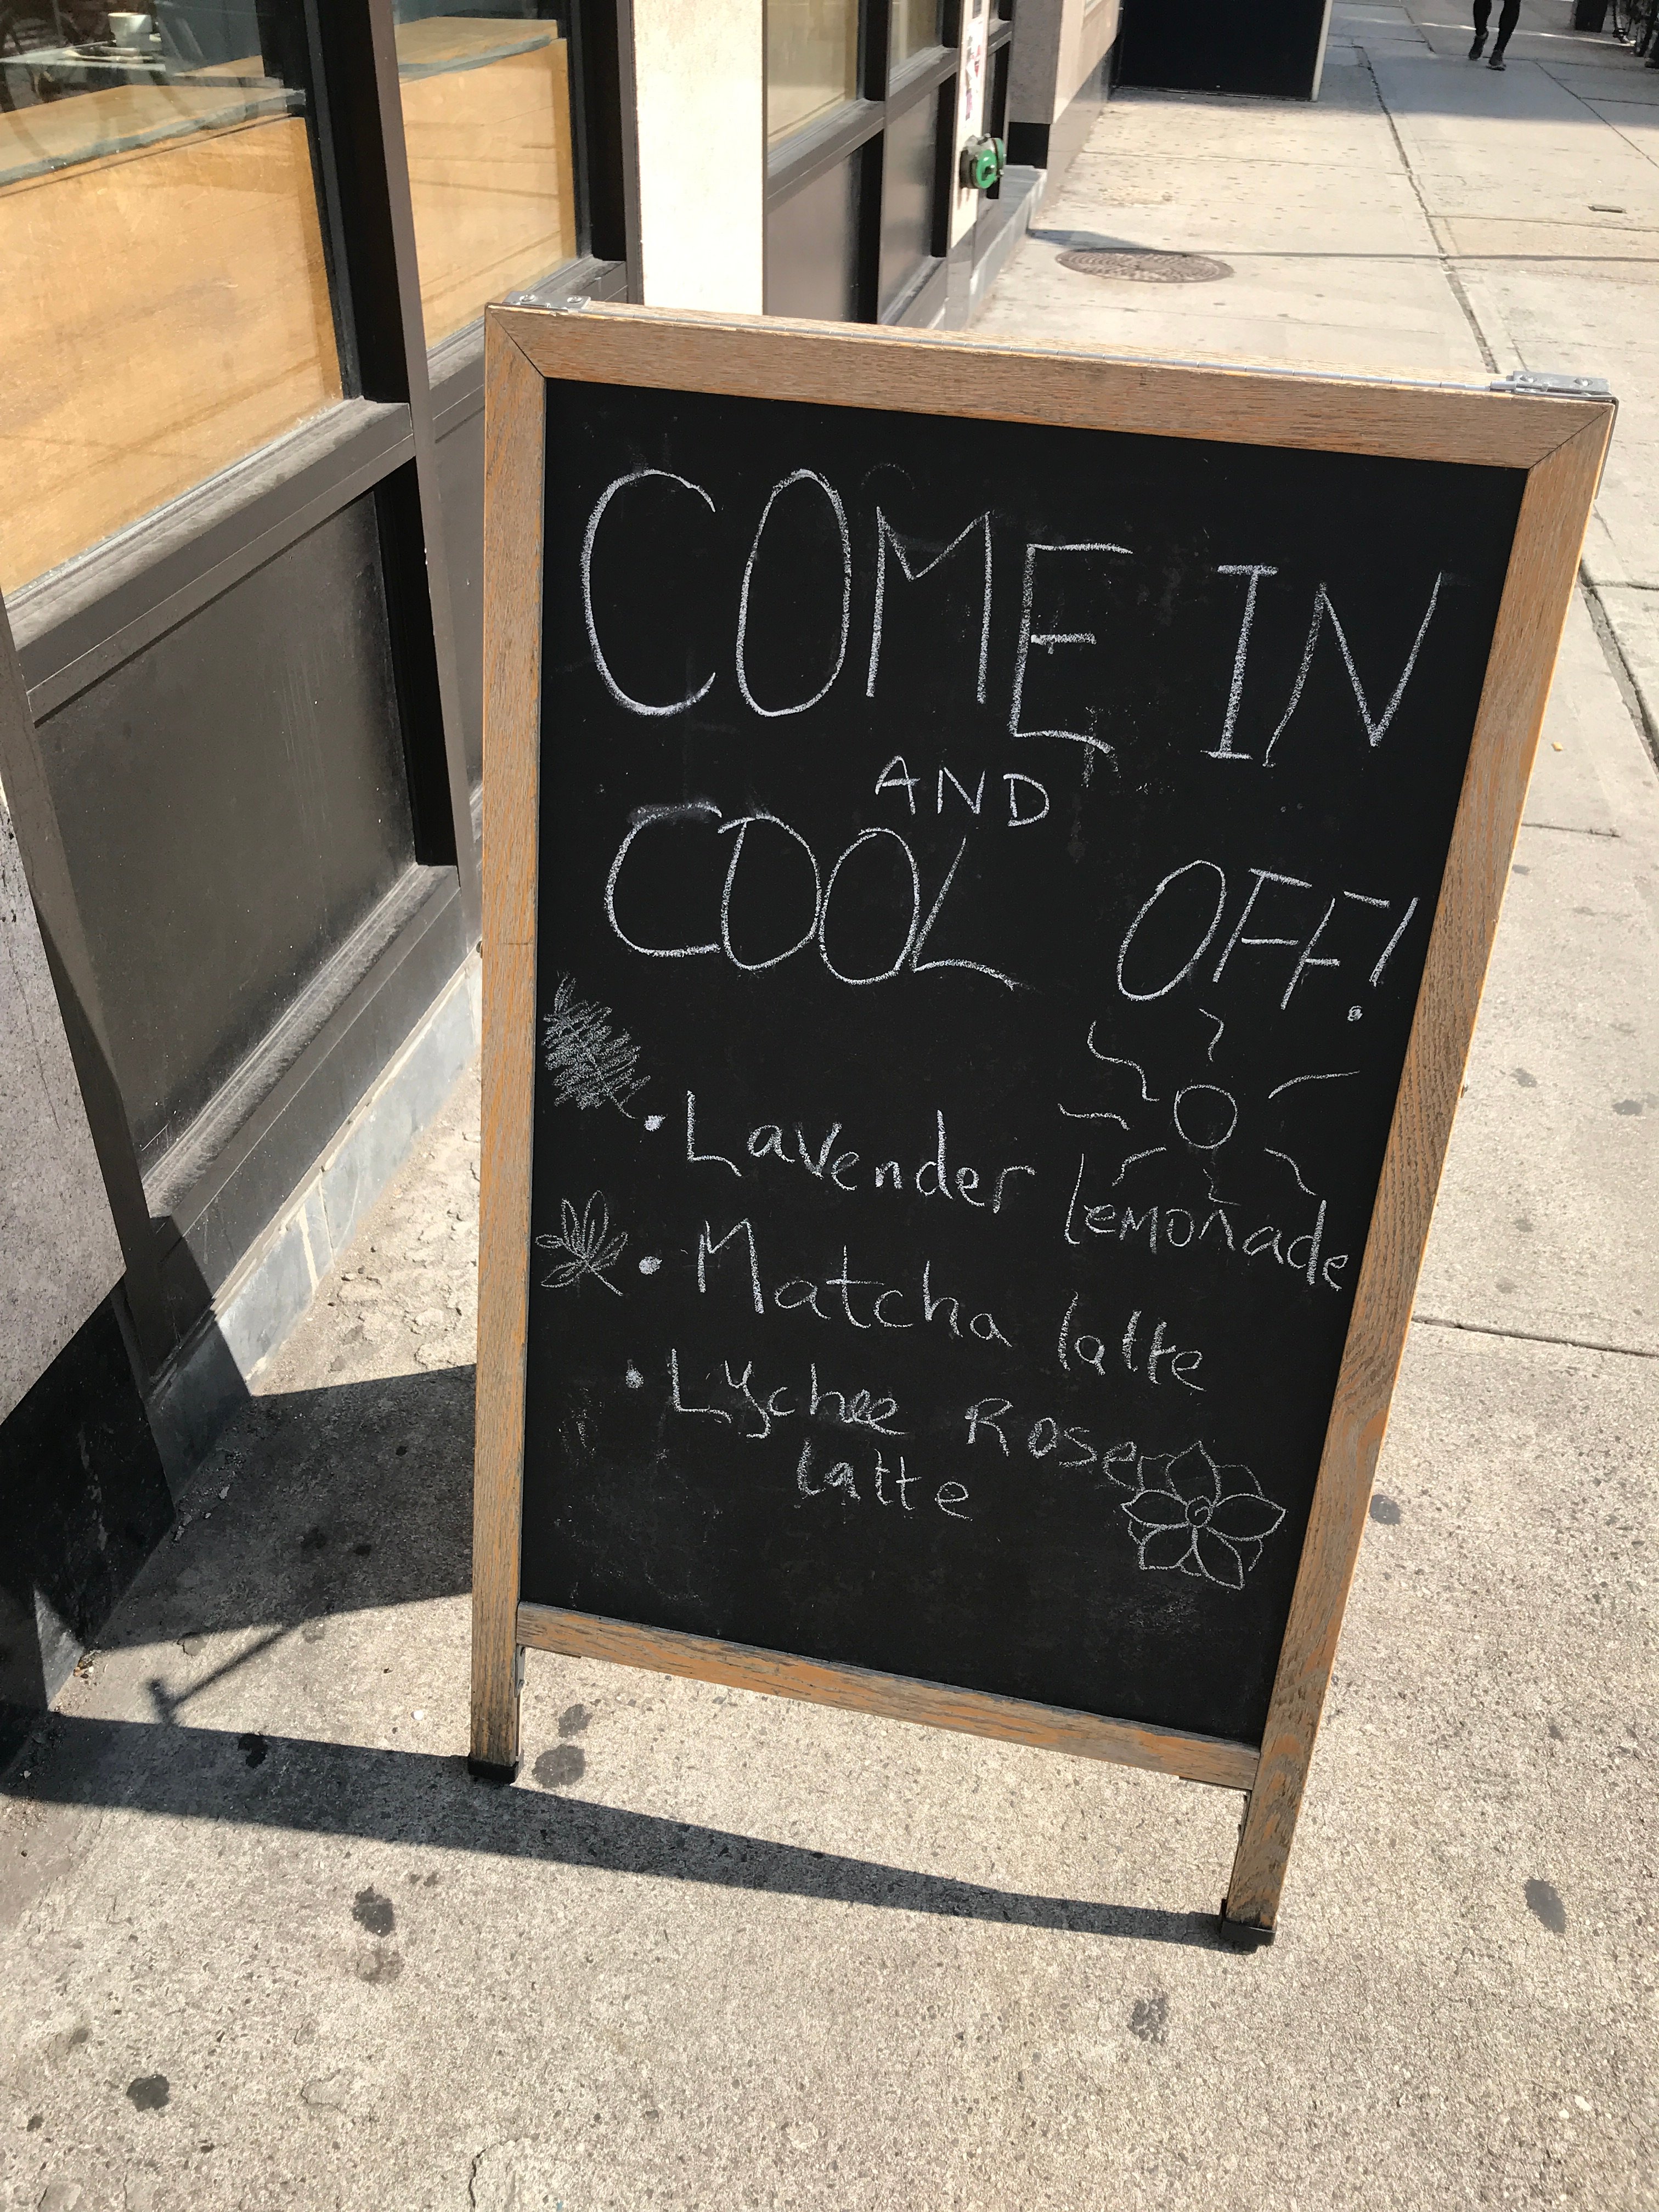 COME IN
AND
COOL OFF!
• Lavender lemonade
• Matcha latte
• Lychee Rose
latte